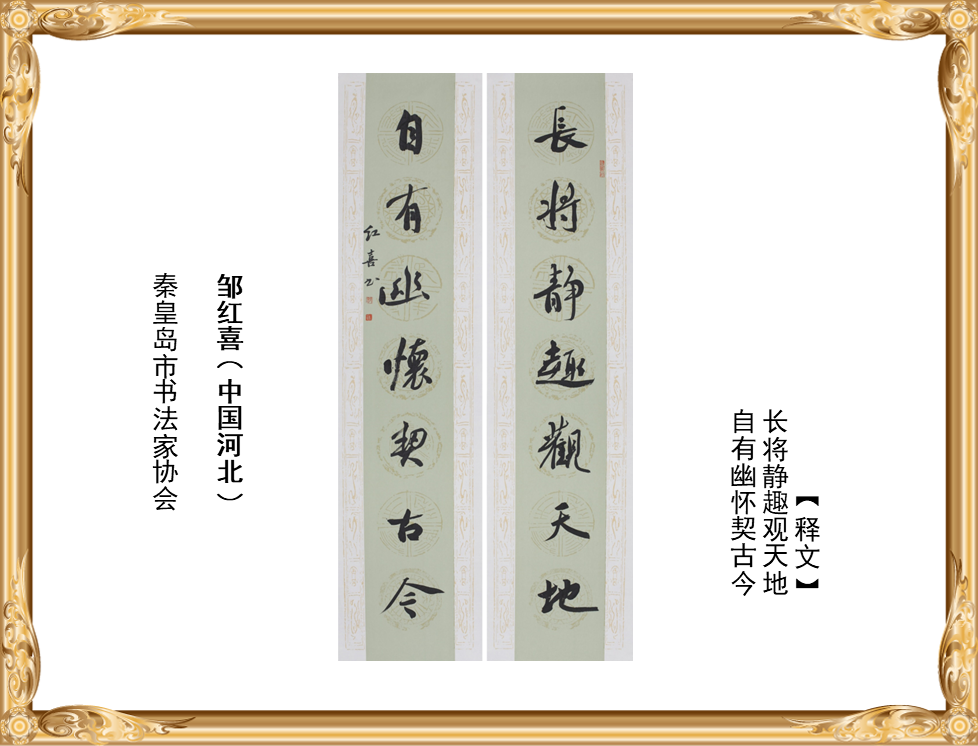 【释文】
长将静趣观天地
自有幽怀契古今
長将静趣觀天地
自有幽懷契古今
红喜书
邹红喜（中国河北）
秦皇岛市书法家协会